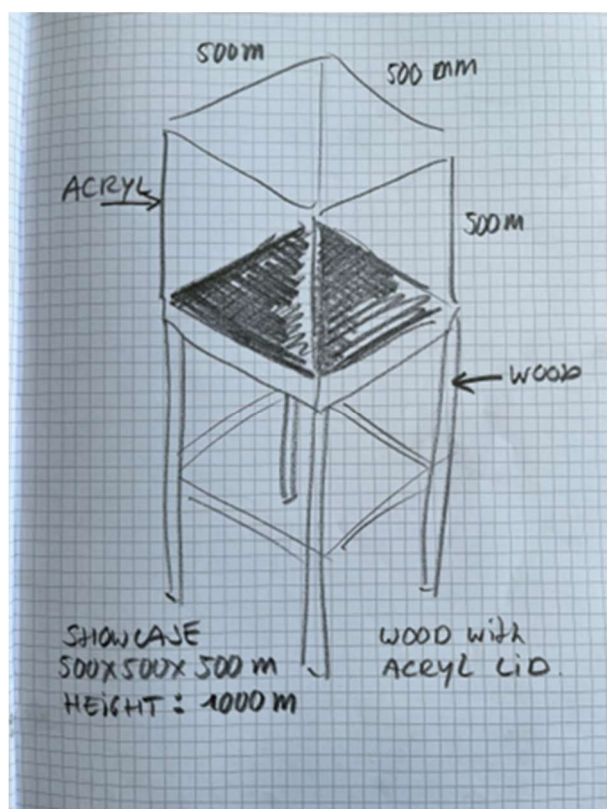 500m
500 mm
ACRYL
500m
WOOD
SHOWCASE
500X500X 500 m
HEIGHT : 1000 m
WOOD with
ACRYL LiD.